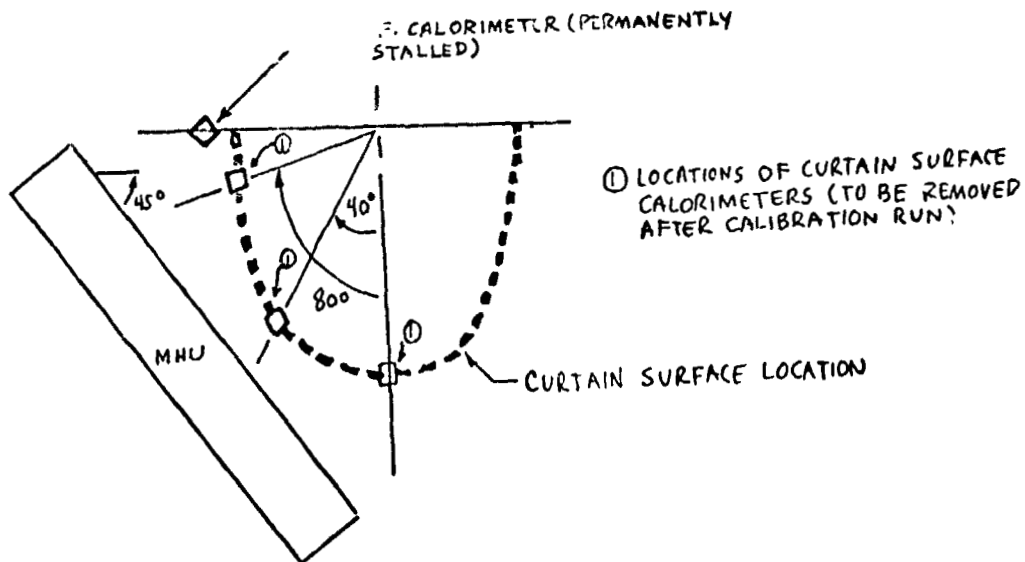 CALORIMETER (PERMANENTLY
STALLED)
①
45°
40°
① LOCATIONS OF CURTAIN SURFACE
CALORIMETERS (TO BE REMOVED
AFTER CALIBRATION RUN)
①
80°
MHU
①
CURTAIN SURFACE LOCATION